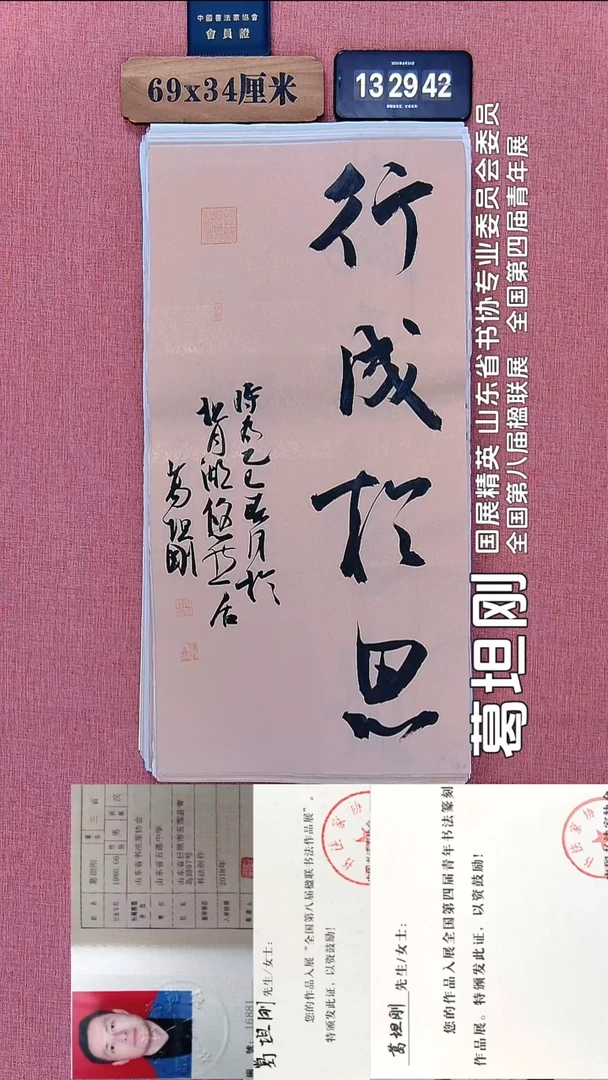 中國書法家協會
會員證
69x34厘米
13 29 42
行成於思
時在乙巳春月於
北月湖悠然居
葛坦剛
葛坦刚
国展精英 山东省书协专业委员会委员
全国第八届楹联展 全国第四届青年展
葛坦刚
男
汉
1980.06
山东省书法家协会
山东省五莲中学
书法创作
2018年
16881
葛坦刚 先生/女士:
您的作品入展“全国第八届楹联书法作品展”。
特颁发此证,以资鼓励!
葛坦刚 先生/女士:
您的作品入展全国第四届青年书法篆刻
作品展。特颁发此证,以资鼓励!